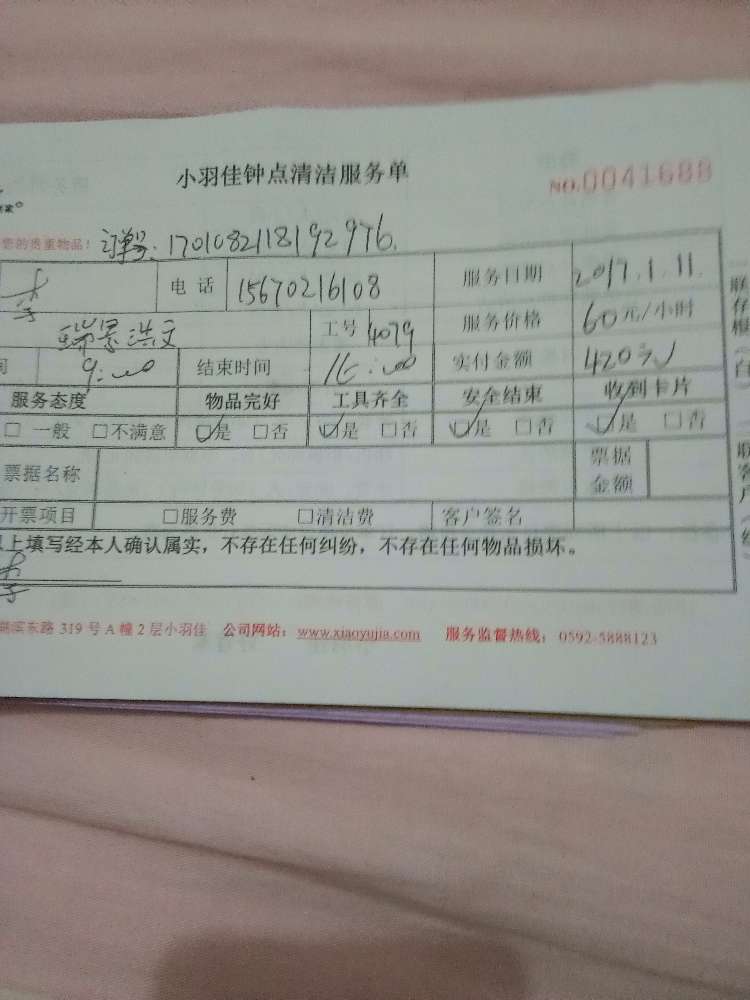 小羽佳钟点清洁服务单
NO.0041688
您的贵重物品! 订单号: 170108211819 2976.
李 电话 15670216108 服务日期 2017.1.11.
瑞景浩文 工号 4079 服务价格 60元/小时
间 9:00 结束时间 16:00 实付金额 420元
服务态度 物品完好 工具齐全 安全结束 收到卡片
□ 一般 □不满意 ☑是 □否 ☑是 □否 ☑是 □否 ☑是 □否
票据名称 票据金额
开票项目 □服务费 □清洁费 客户签名
以上填写经本人确认属实，不存在任何纠纷，不存在任何物品损坏。
李
湖滨东路 319 号 A 幢 2 层小羽佳 公司网站：www.xiaoyujia.com 服务监督热线：0592-5888123
联
存
根
白
联
客
户